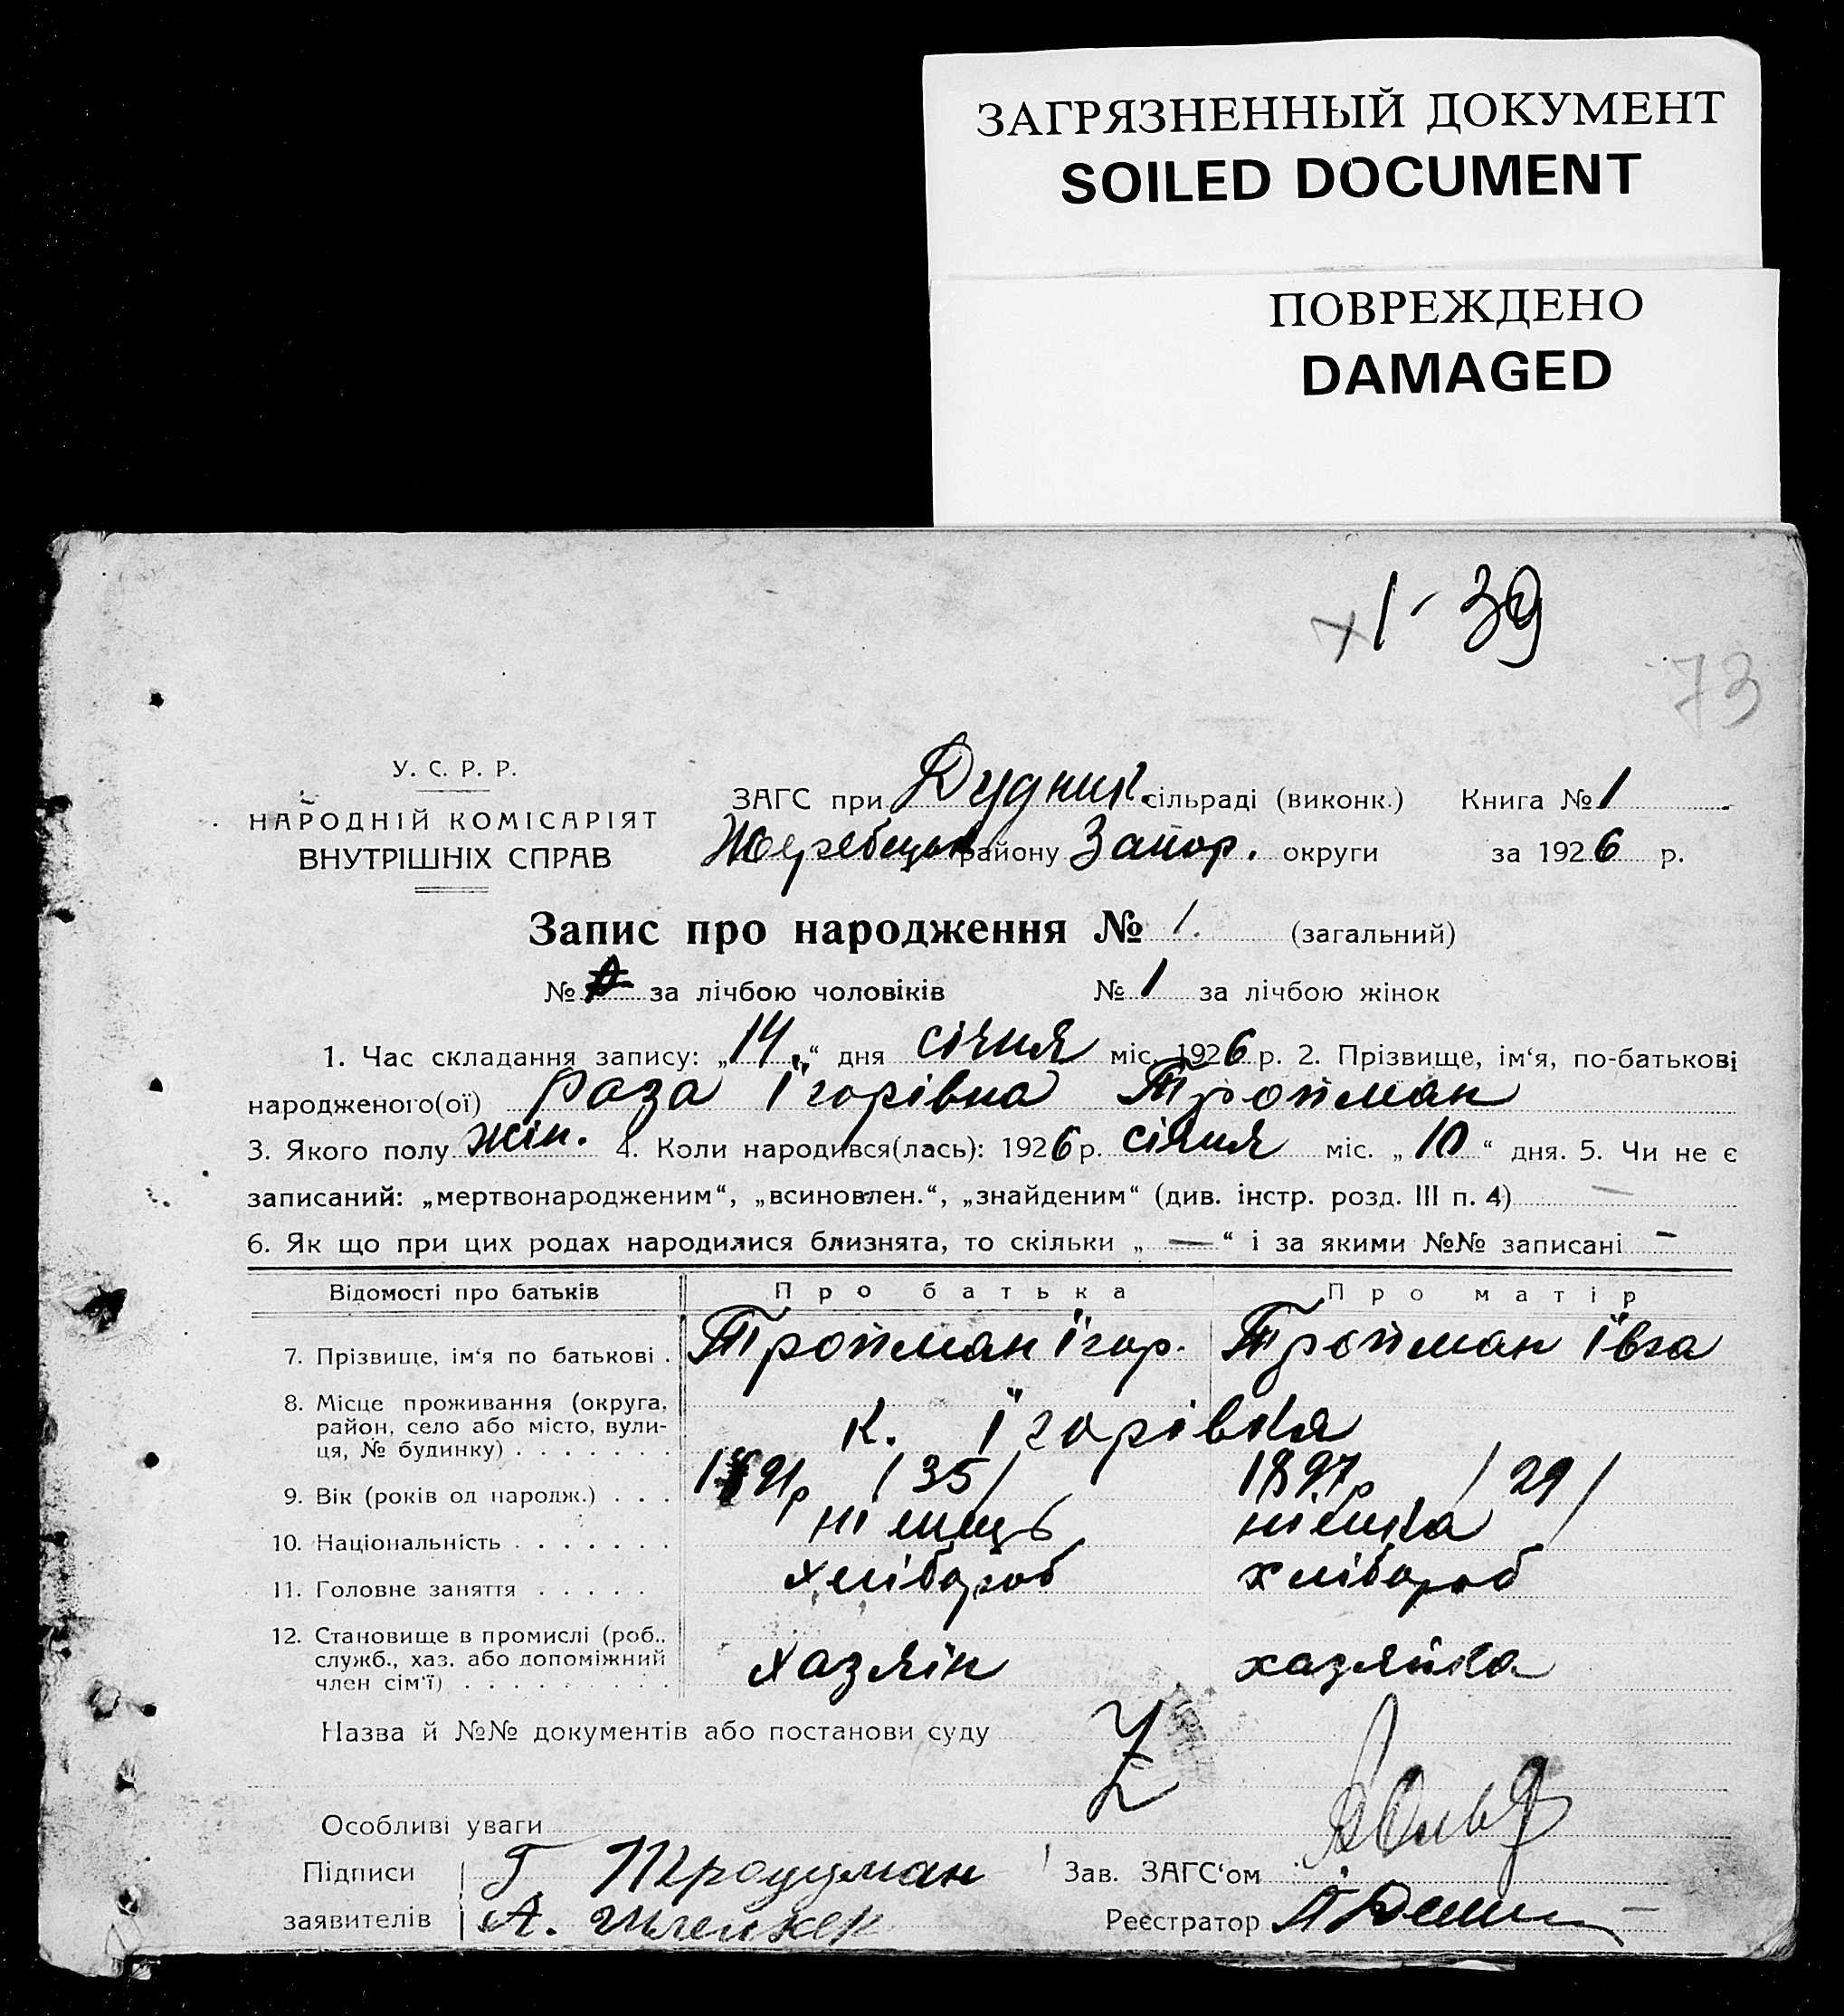 ЗАГРЯЗНЕННЫЙ ДОКУМЕНТ
SOILED DOCUMENT
ПОВРЕЖДЕНО
DAMAGED
1-39
73
У. С. Р. Р.
НАРОДНІЙ КОМІСАРІЯТ
ВНУТРІШНІХ СПРАВ
ЗАГС при Дудник. сільраді (виконк.) Книга № 1
району Запор. округи за 1926 р.
Запис про народження № 1. (загальний)
№ за лічбою чоловіків № 1 за лічбою жінок
1. Час складання запису: „14“ дня січня міс. 1926 р. 2. Прізвище, ім‘я, по-батькові
народженого(ої) Роза Ігорівна Тройман
3. Якого полу жін. 4. Коли народився(лась): 1926 р. січня міс. „10“ дня. 5. Чи не є
записаний: „мертвонародженим“, „всиновлен.“, „знайденим“ (див. інстр. розд. III п. 4) —
6. Як що при цих родах народилися близнята, то скільки „—“ і за якими №№ записані —
Відомості про батьків Про батька Про матір
7. Прізвище, ім‘я по батькові . Тройман Ігор. Тройман Івга
8. Місце проживання (округа, район, село або місто, вулиця, № будинку) . . . . . . . к. Ігорівка
9. Вік (років од народж.) . . . 1891р /35/ 1897р /29/
10. Національність . . . . . . . німець німка
11. Головне заняття . . . . . хлібороб хлібороб
12. Становище в промислі (роб., служб., хаз. або допоміжний член сім‘ї) . . . . . . . . . хазяїн хазяйка
Назва й №№ документів або постанови суду
Особливі уваги
Підписи Г. Зав. ЗАГС‘ом
заявителів А. Реєстратор